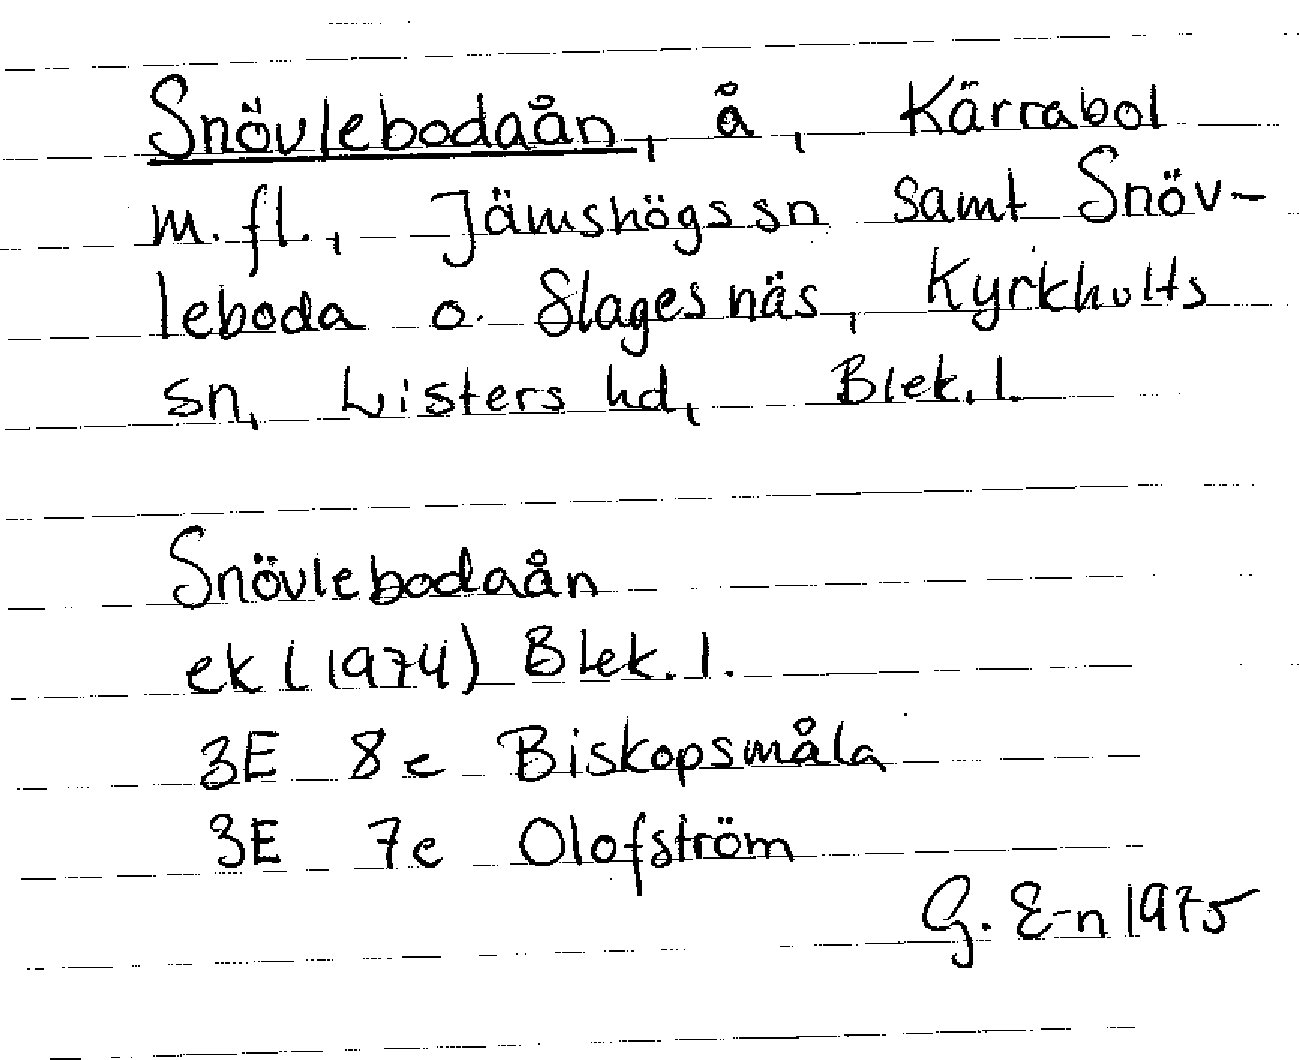 Snövlebodaån, å, Kärrabol
m.fl., Jämshögs sn samt Snöv-
leboda o. Slagesnäs, Kyrkhults
sn, Listers hd, Blek.l.
Snövlebodaån
ek (1974) Blek.l.
3E 8c Biskopsmåla
3E 7c Olofström
G. E-n 1975